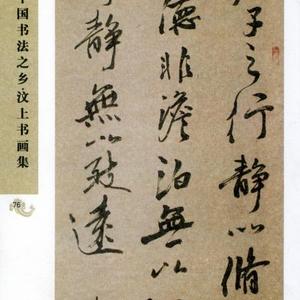 子之行静以脩
德非澹泊無以
静無以致遠
中国书法之乡汶上书画集
76